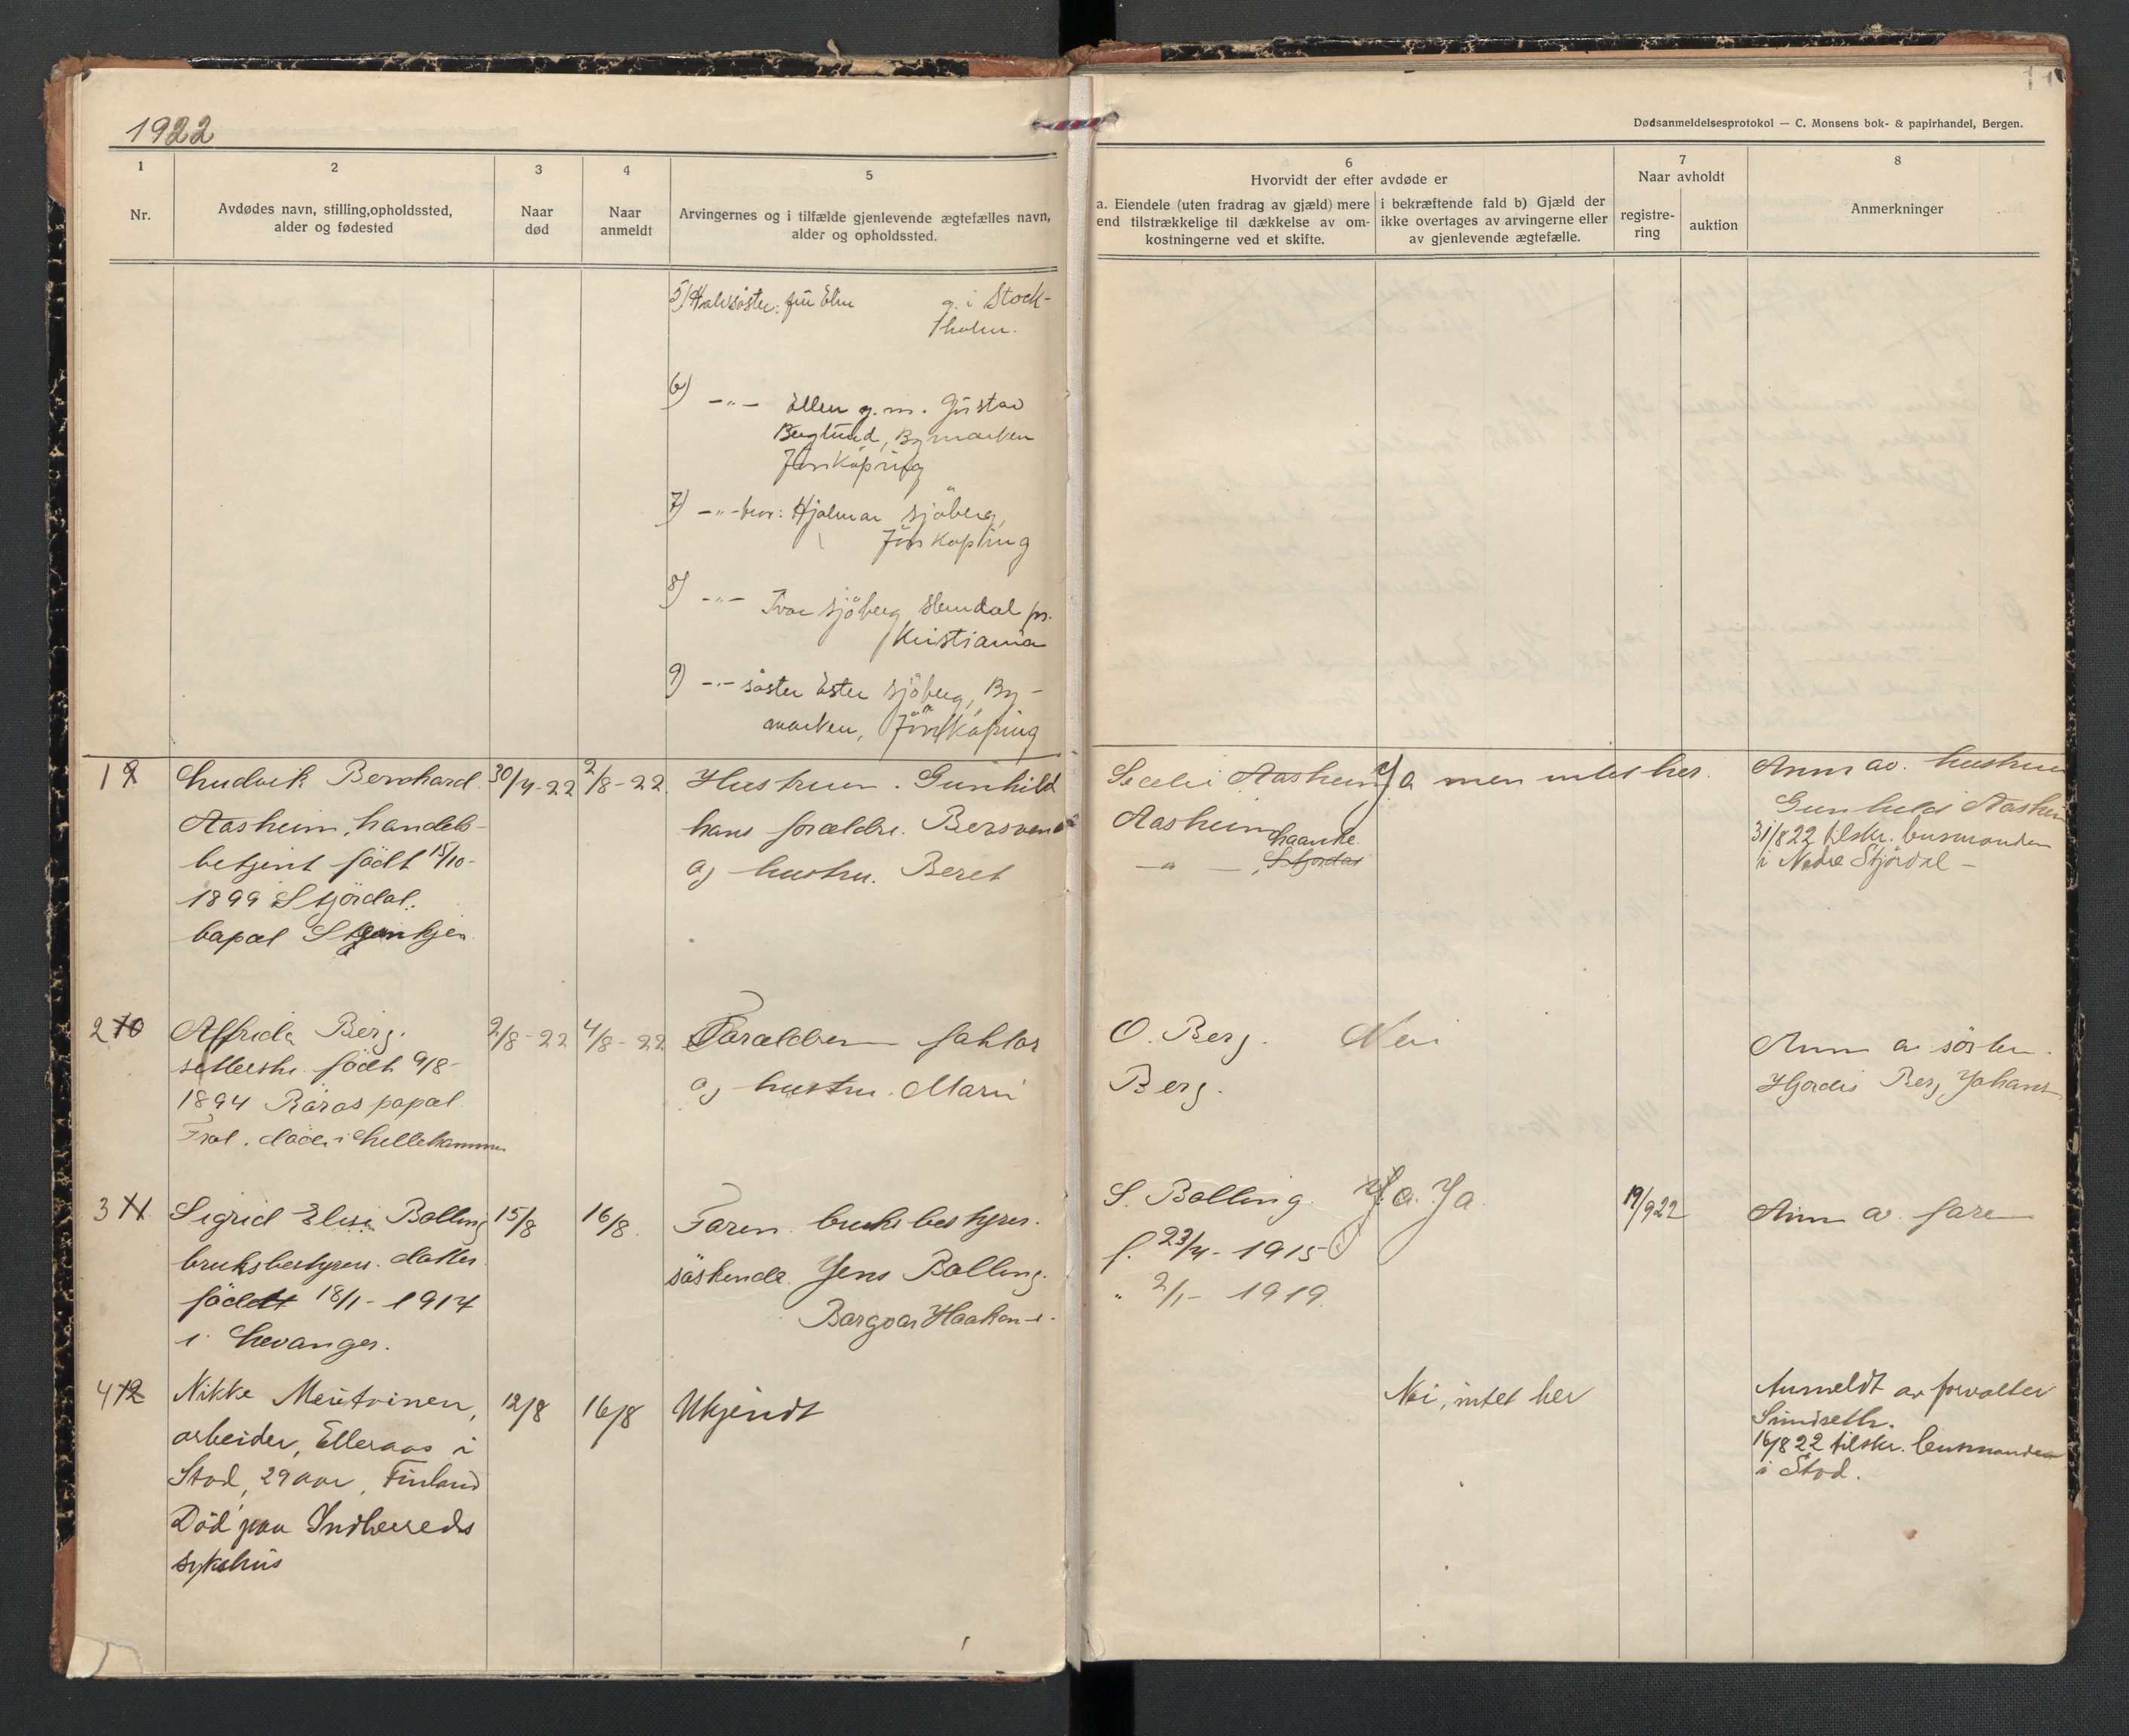 1922
11
Dødsanmeldelsesprotokol — C. Monsens bok- & papirhandel, Bergen.
1
Nr.
2
Avdødes navn, stilling, opholdssted,
alder og fødested
3
Naar
død
4
Naar
anmeldt
5
Arvingernes og i tilfælde gjenlevende ægtefælles navn,
alder og opholdssted.
6
Hvorvidt der efter avdøde er
a. Eiendele (uten fradrag av gjæld) mere
end tilstrækkelige til dækkelse av om-
kostningerne ved et skifte.
i bekræftende fald b) Gjæld der
ikke overtages av arvingerne eller
av gjenlevende ægtefælle.
7
Naar avholdt
registre-
ring
auktion
8
Anmerkninger
5) Halvsøster: fru Elin g. i Stock-
holm.
6) -"- Ellen g. m. Gustav
Berglund, Bymarken
Jönköping
7) -"- bror: Hjalmar Sjöberg,
Jönköping
8) -"- Ivar Sjöberg Slemdal pr.
Kristiania
9) -"- søster Ester Sjöberg, By-
marken, Jönköping
1 9
Ludvik Bernhard
Aasheim, handels-
betjent født 15/10-
1899 Stjørdal.
bopæl Steinkjer
30/4-22
2/8-22
Hustruen. Gunhild
hans forældre. Bersvend
og hustru. Beret
Aasheim
Aasheim
-"-
Ja men intet her.
Anm av. hustru
Gunhild Aasheim
31/8 22 tilskr. lensmanden
i Nedre Stjørdal -
2 10
Alfrida Berg.
født 9/8-
1894 Røros bopæl
Frol. død i Lillehammer
2/8-22
4/8-22
Forældren faktor
og hustru. Marie
O. Berg.
Berg.
Nei
Anm av søster.
Hjørdis Berg Johans
3 11
Sigrid Elise Bolling
bruksbestyrers. datter
født 18/1-1914
i Levanger.
15/8
16/8.
Faren bruksbestyrer.
søskende. Jens Bolling.
Haakon -"-
S. Bolling.
f. 23/4-1915
" 2/1-1919.
Ja. Ja
19/9 22
Anm av. faren
4 12
Nikke
arbeider, Elleraas i
Stod, 29 aar, Finland
Død paa Indherreds
sykehus
12/8
16/8
Ukjendt
Nei, intet her
Anmeldt av forvalter
16/8 22 tilskr. lensmanden
i Stod.